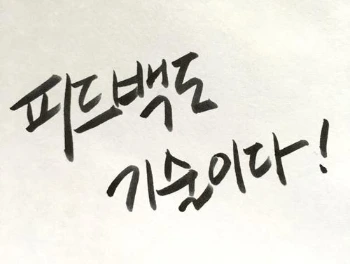 피드백도
기술이다!